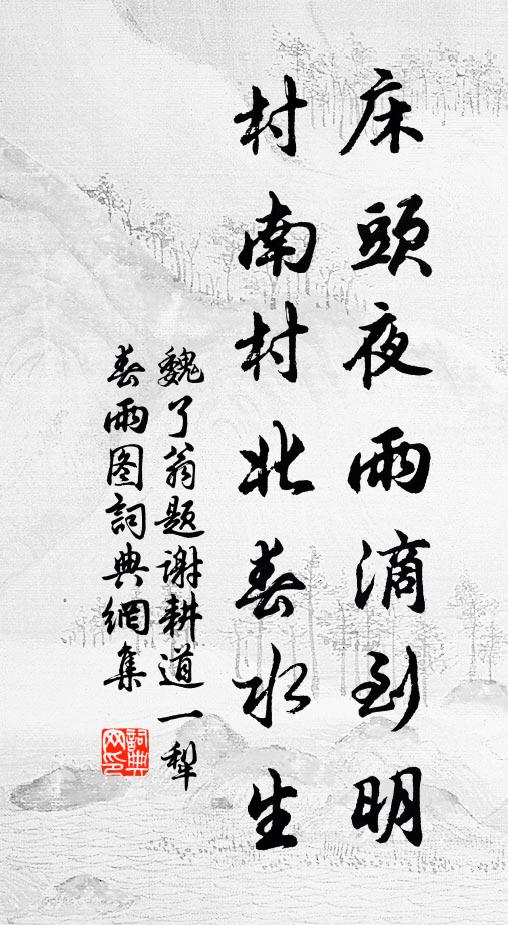 床頭夜雨滴到明
村南村北春水生
魏了翁题謝耕道一犁
春雨图詞典網集
詞典
网印